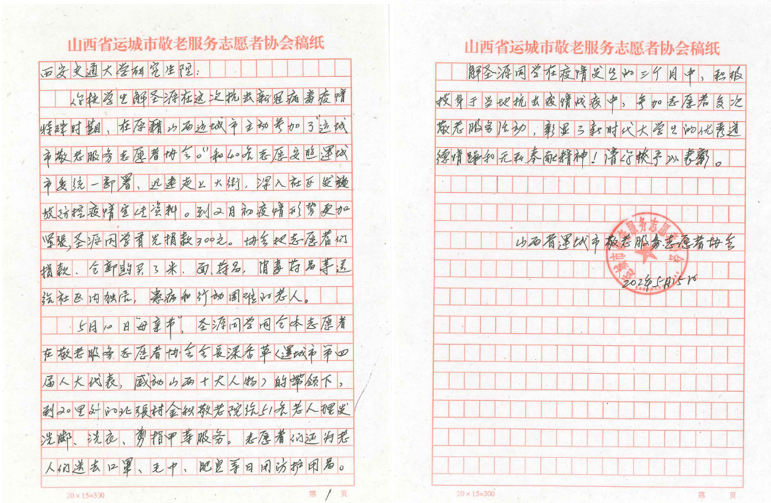 山西省运城市敬老服务志愿者协会稿纸
西安交通大学研究生院:
你校学生解圣源在这次抗击新冠病毒疫情
特殊时期,在原籍山西运城市主动参加了"运城
市敬老服务志愿者协会。"和40名志愿者随运城
市委统一部署、迅速走上大街,深入社区发放
放防控疫情宣传资料。到2月初疫情形势更加
紧张圣源同学首先捐款300元。协会把志愿者们
捐款、全部购买了米、面、药品,消毒药品等送
给社区内独住,患病和行动困难的老人。
5月10日"母亲节",圣源同学同全体志愿者
在敬老服务志愿者协会会长深香草(运城市第四
届人大代表,感动山西十大人物)的带领下,
到20里外的北张村金秋敬老院给51名老人理发
洗脚、洗衣、剪指甲等服务。志愿者们还为老
人们送去口罩、毛巾、肥皂等日用防护用品。
20×15=300
第 1 页
山西省运城市敬老服务志愿者协会稿纸
解圣源同学在疫情发生的三个月中,积极
投身于当地抗击疫情战疫中,参加志愿者多次
敬老服务活动,彰显了新时代大学生的优秀道
德情操和无私奉献精神!请你校予以表彰。
山西省运城市敬老服务志愿者协会
2020年5月15日
20×15=300
第 页